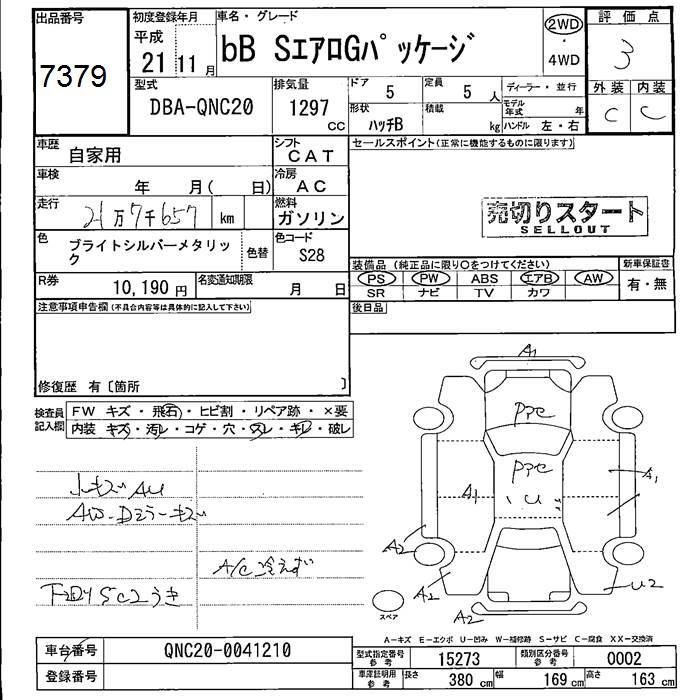 出品番号
7379
初度登録年月
平成
21 11月
車名・グレード
bB SエアロGパッケージ
2WD
・
4WD
評価点
3
外装 内装
C C
型式
DBA-QNC20
排気量
1297
CC
ドア
5
定員
5 人
形状
ハッチB
積載
kg
ディーラー・並行
モデル年式 年
ハンドル 左・右
車歴
自家用
シフト
CAT
車検
年 月( 日)
冷房
AC
走行
21万7千657 km
燃料
ガソリン
色
ブライトシルバーメタリック
色替
色コード
S28
R券
10,190円
名変通知期限
月 日
セールスポイント(正常に機能するものに限ります)
売切りスタート
SELLOUT
装備品(純正品に限り○をつけてください)
PS PW ABS エアB AW
SR ナビ TV カワ
新車保証書
有・無
後日品
注意事項申告欄(不具合内容等は具体的に記入して下さい)
修復歴 有〔箇所 〕
検査員記入欄
FW キズ・飛石・ヒビ割・リペア跡・×要
内装 キズ・汚レ・コゲ・穴・スレ・キレ・破レ
小キズ AU
AW・Dミラーキズ
A/C冷えず
下回りSC2うき
A1
PPC
PPC
A1
U
A1
A2
A2
U2
A2
スペア
A-キズ E-エクボ U-凹み W-補修跡 S-サビ C-腐食 XX-交換済
車台番号
QNC20-0041210
登録番号
型式指定番号
参考
15273
類別区分番号
参考
0002
車庫証明用
参考
長さ 380 cm 幅 169 cm 高さ 163 cm